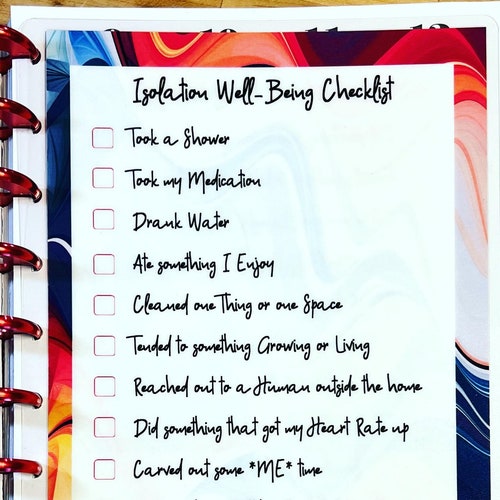 Isolation Well-Being Checklist
Took a Shower
Took my Medication
Drank Water
Ate something I Enjoy
Cleaned one Thing or one Space
Tended to something Growing or Living
Reached out to a Human outside the home
Did something that got my Heart Rate up
Carved out some *ME* time